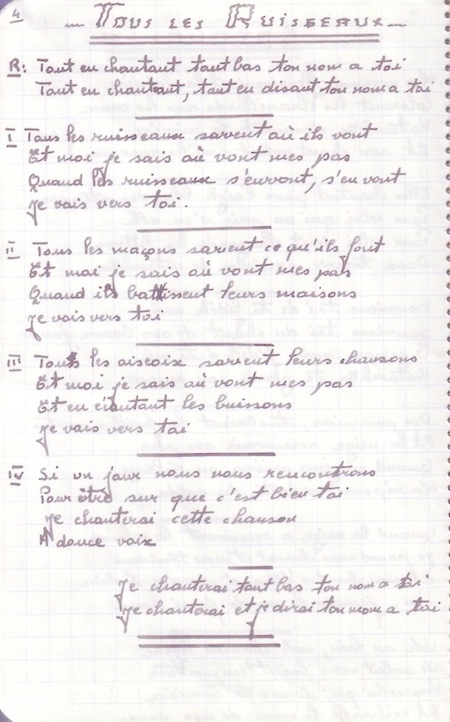 4
Tous les Ruisseaux
R: Tout en chantant tout bas ton nom a toi
Tout en chantant, tout en disant ton nom a toi
I Tous les ruisseaux savent où ils vont
Et moi je sais où vont mes pas
Quand les ruisseaux s'en vont, s'en vont
Je vais vers toi.
II Tous les maçons savent ce qu'ils font
Et moi je sais où vont mes pas
Quand ils battissent leurs maisons
Je vais vers toi
III Tous les oiseaix savent leurs chansons
Et moi je sais où vont mes pas
Et en écoutant les buissons
Je vais vers toi
IV Si un jour nous nous rencontrons
Pour être sur que c'est bien toi
Je chanterai cette chanson
A douce voix
Je chanterai tout bas ton nom a toi
Je chanterai et je dirai ton nom a toi